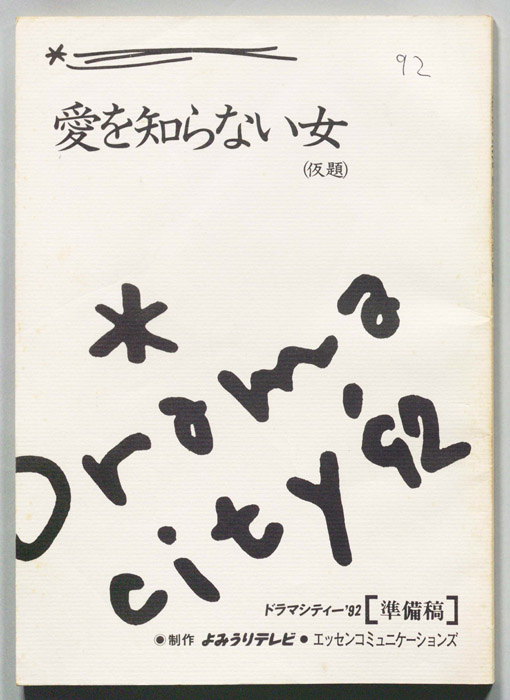 92
愛を知らない女
(仮題)
*
Drama
city '92
ドラマシティー'92 [準備稿]
●制作 よみうりテレビ●エッセンコミュニケーションズ